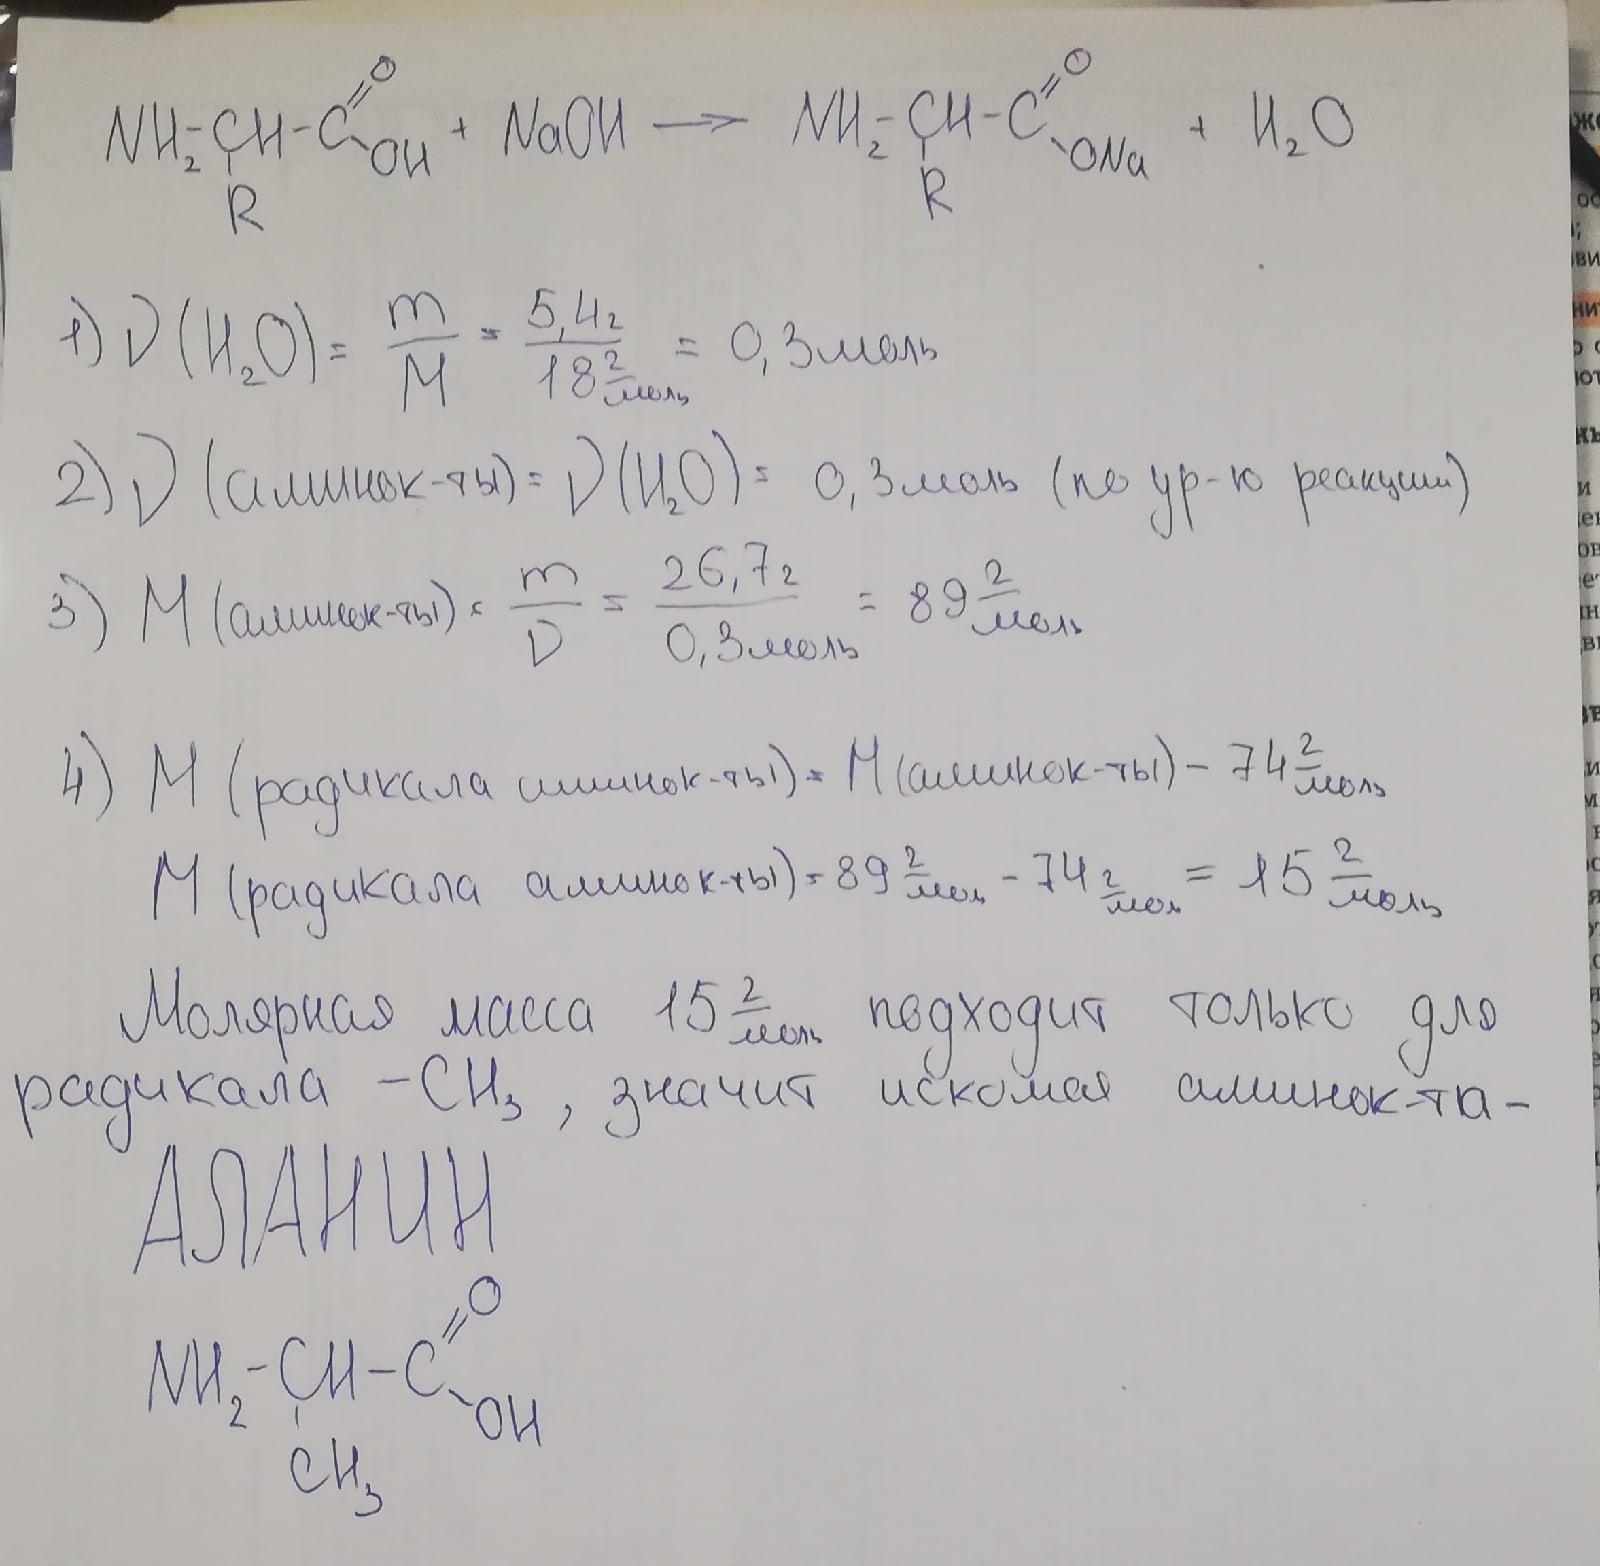 NH₂-CH-C=O OH + NaOH → NH₂-CH-C=O ONa + H₂O
R R
1) ν(H₂O) = m/M = 5,4г/18 г/моль = 0,3моль
2) ν(аминок-ты) = ν(H₂O) = 0,3моль (по ур-ю реакции)
3) M(аминок-ты) = m/ν = 26,7г/0,3моль = 89 г/моль
4) M(радикала аминок-ты) = M(аминок-ты) - 74 г/моль
M(радикала аминок-ты) = 89 г/мол - 74 г/мол = 15 г/моль
Молярная масса 15 г/моль подходит только для
радикала -CH₃, значит искомая аминок-та -
АЛАНИН
NH₂-CH-C=O OH
CH₃